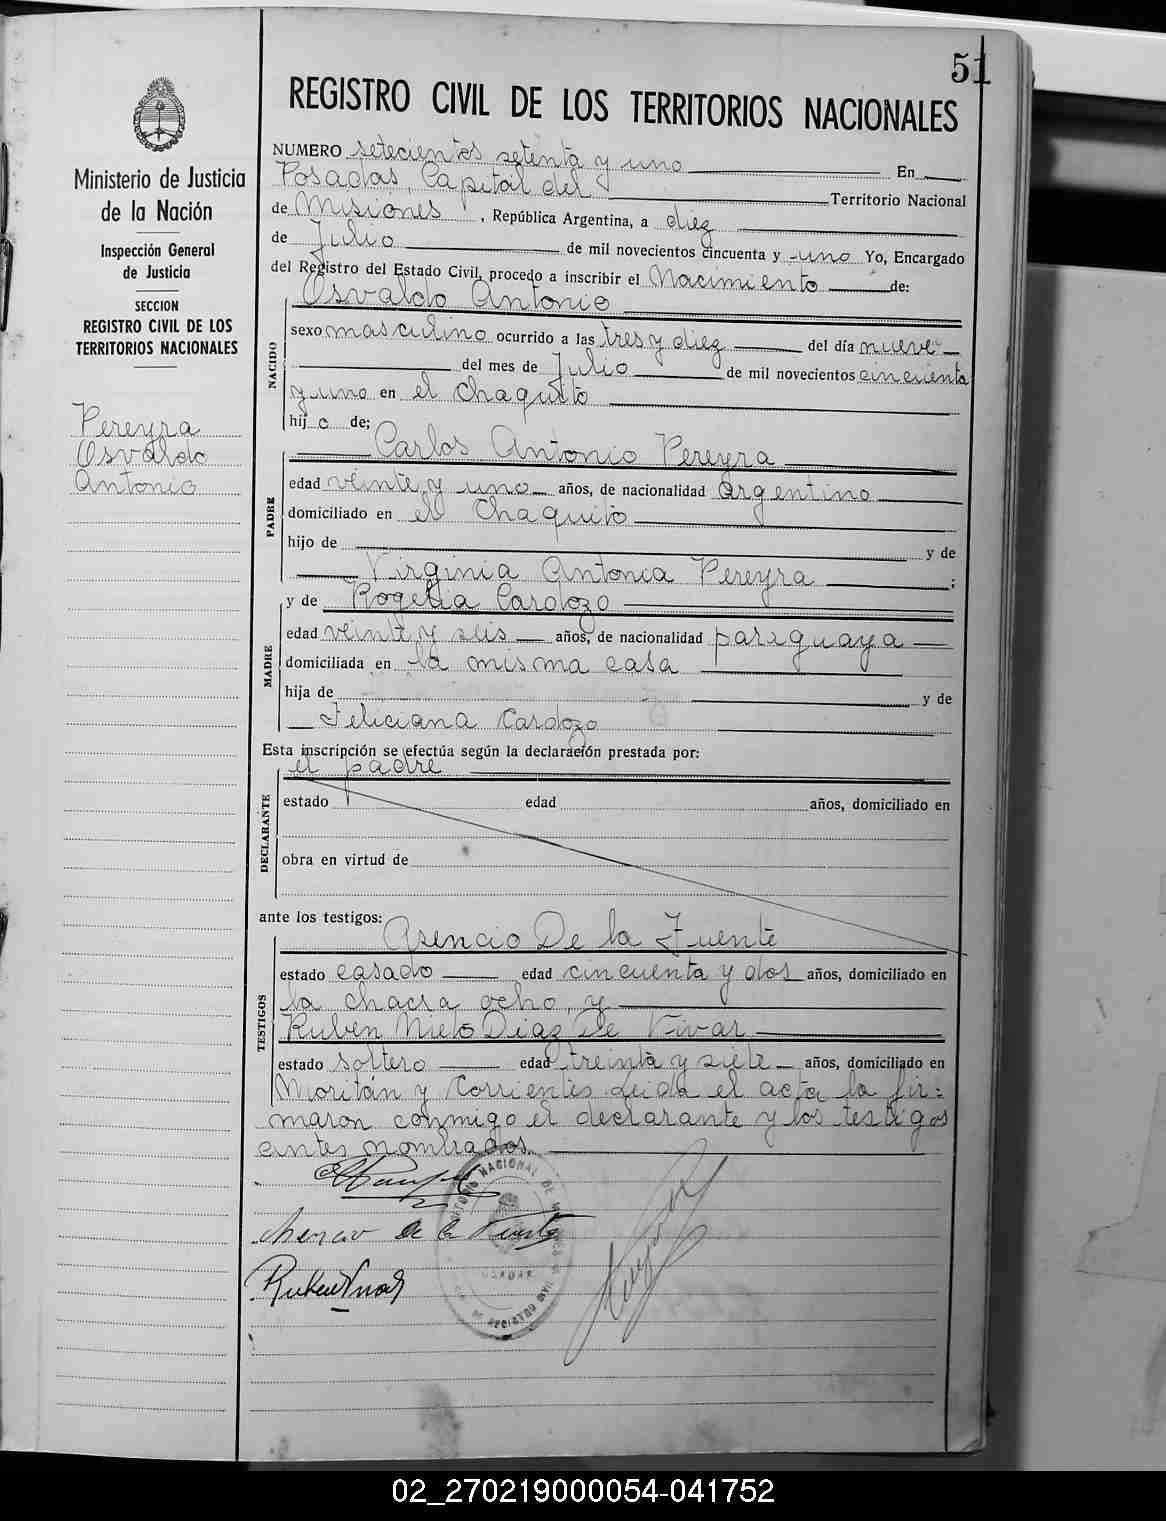 51
REGISTRO CIVIL DE LOS TERRITORIOS NACIONALES
Ministerio de Justicia
de la Nación
Inspección General
de Justicia
SECCION
REGISTRO CIVIL DE LOS
TERRITORIOS NACIONALES
Pereyra
Osvaldo
Antonio
NUMERO setecientos setenta y uno En
Posadas, Capital del Territorio Nacional
de Misiones, República Argentina, a diez
de Julio de mil novecientos cincuenta y uno Yo, Encargado
del Registro del Estado Civil, procedo a inscribir el Nacimiento de:
Osvaldo Antonio
NACIDO
sexo masculino ocurrido a las tres y diez del día nueve
del mes de Julio de mil novecientos cincuenta
y uno en el Chaquito
hijo de;
Carlos Antonio Pereyra
PADRE
edad veinte y uno años, de nacionalidad argentino
domiciliado en el Chaquito
hijo de y de
Virginia Antonia Pereyra ;
y de Rogelia Cardozo
MADRE
edad veinte y seis años, de nacionalidad paraguaya
domiciliada en la misma casa
hija de y de
Feliciana Cardozo
Esta inscripción se efectúa según la declaración prestada por:
el padre
DECLARANTE
estado edad años, domiciliado en
obra en virtud de
ante los testigos:
Asencio De la Fuente
TESTIGOS
estado casado edad cincuenta y dos años, domiciliado en
la chacra ocho, y
Ruben Nieto Diaz De Vivar
estado soltero edad treinta y siete años, domiciliado en
Moritán y Corrientes. Leida el acta la fir=
maron conmigo el declarante y los testigos
antes nombrados.
Asencio de la Fuente
02_270219000054-041752